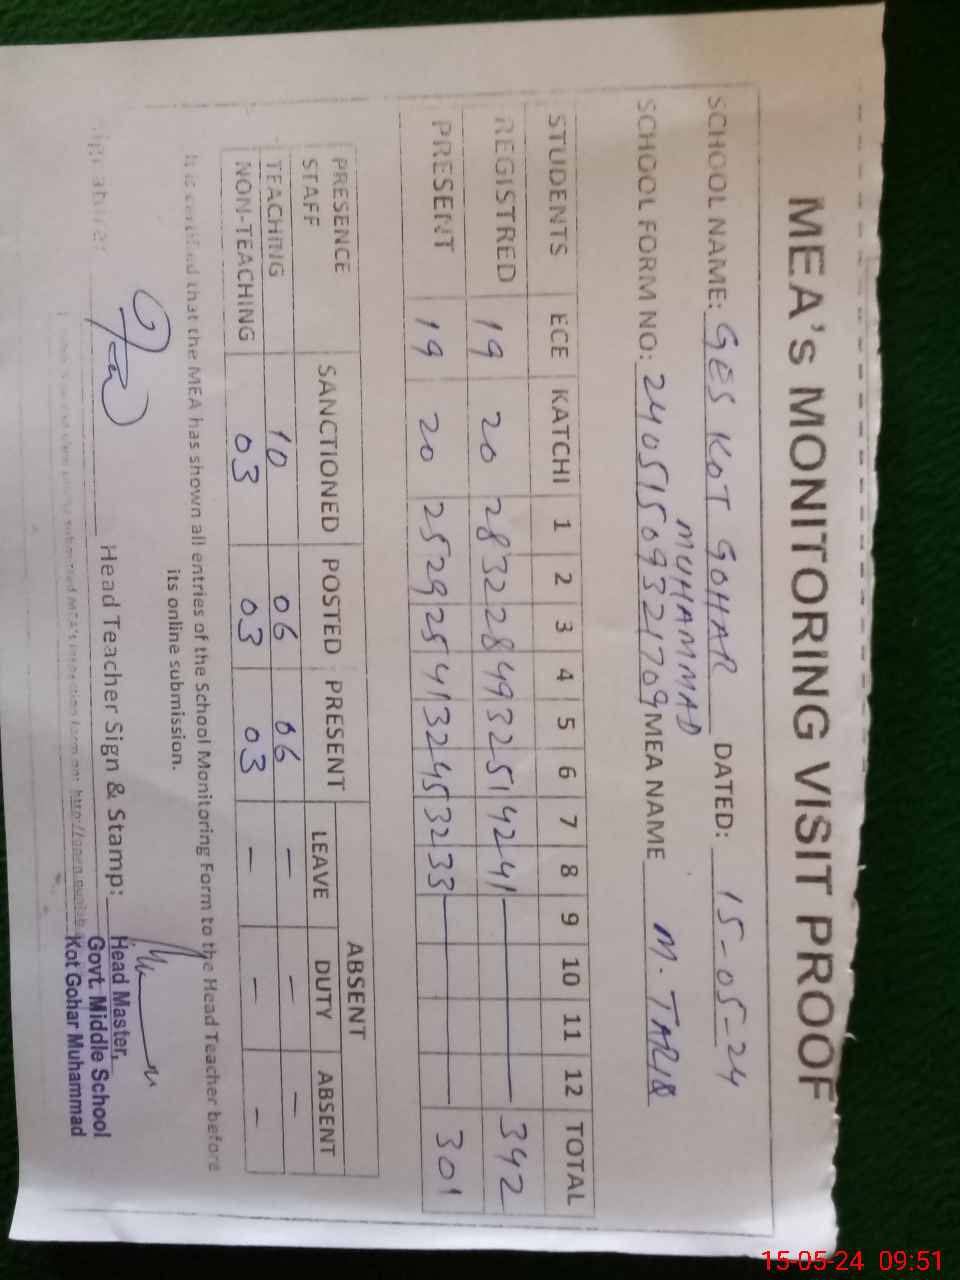 MEA's MONITORING VISIT PROOF
SCHOOL NAME: GES KOT GOHAR DATED: 15-05-24
MUHAMMAD
SCHOOL FORM NO: 24051509321709 MEA NAME M. TARIQ
STUDENTS ECE KATCHI 1 2 3 4 5 6 7 8 9 10 11 12 TOTAL
REGISTRED 19 20 28 32 28 49 32 51 42 41 — 342
PRESENT 19 20 25 29 25 41 32 45 32 33 — 301
PRESENCE SANCTIONED POSTED PRESENT ABSENT
STAFF LEAVE DUTY ABSENT
TEACHING 10 06 06 – – –
NON-TEACHING 03 03 03 – – –
It is certified that the MEA has shown all entries of the School Monitoring Form to the Head Teacher before
its online submission.
Head Teacher Sign & Stamp:
Head Master,
Govt. Middle School
Kot Gohar Muhammad
15-05-24 09:51